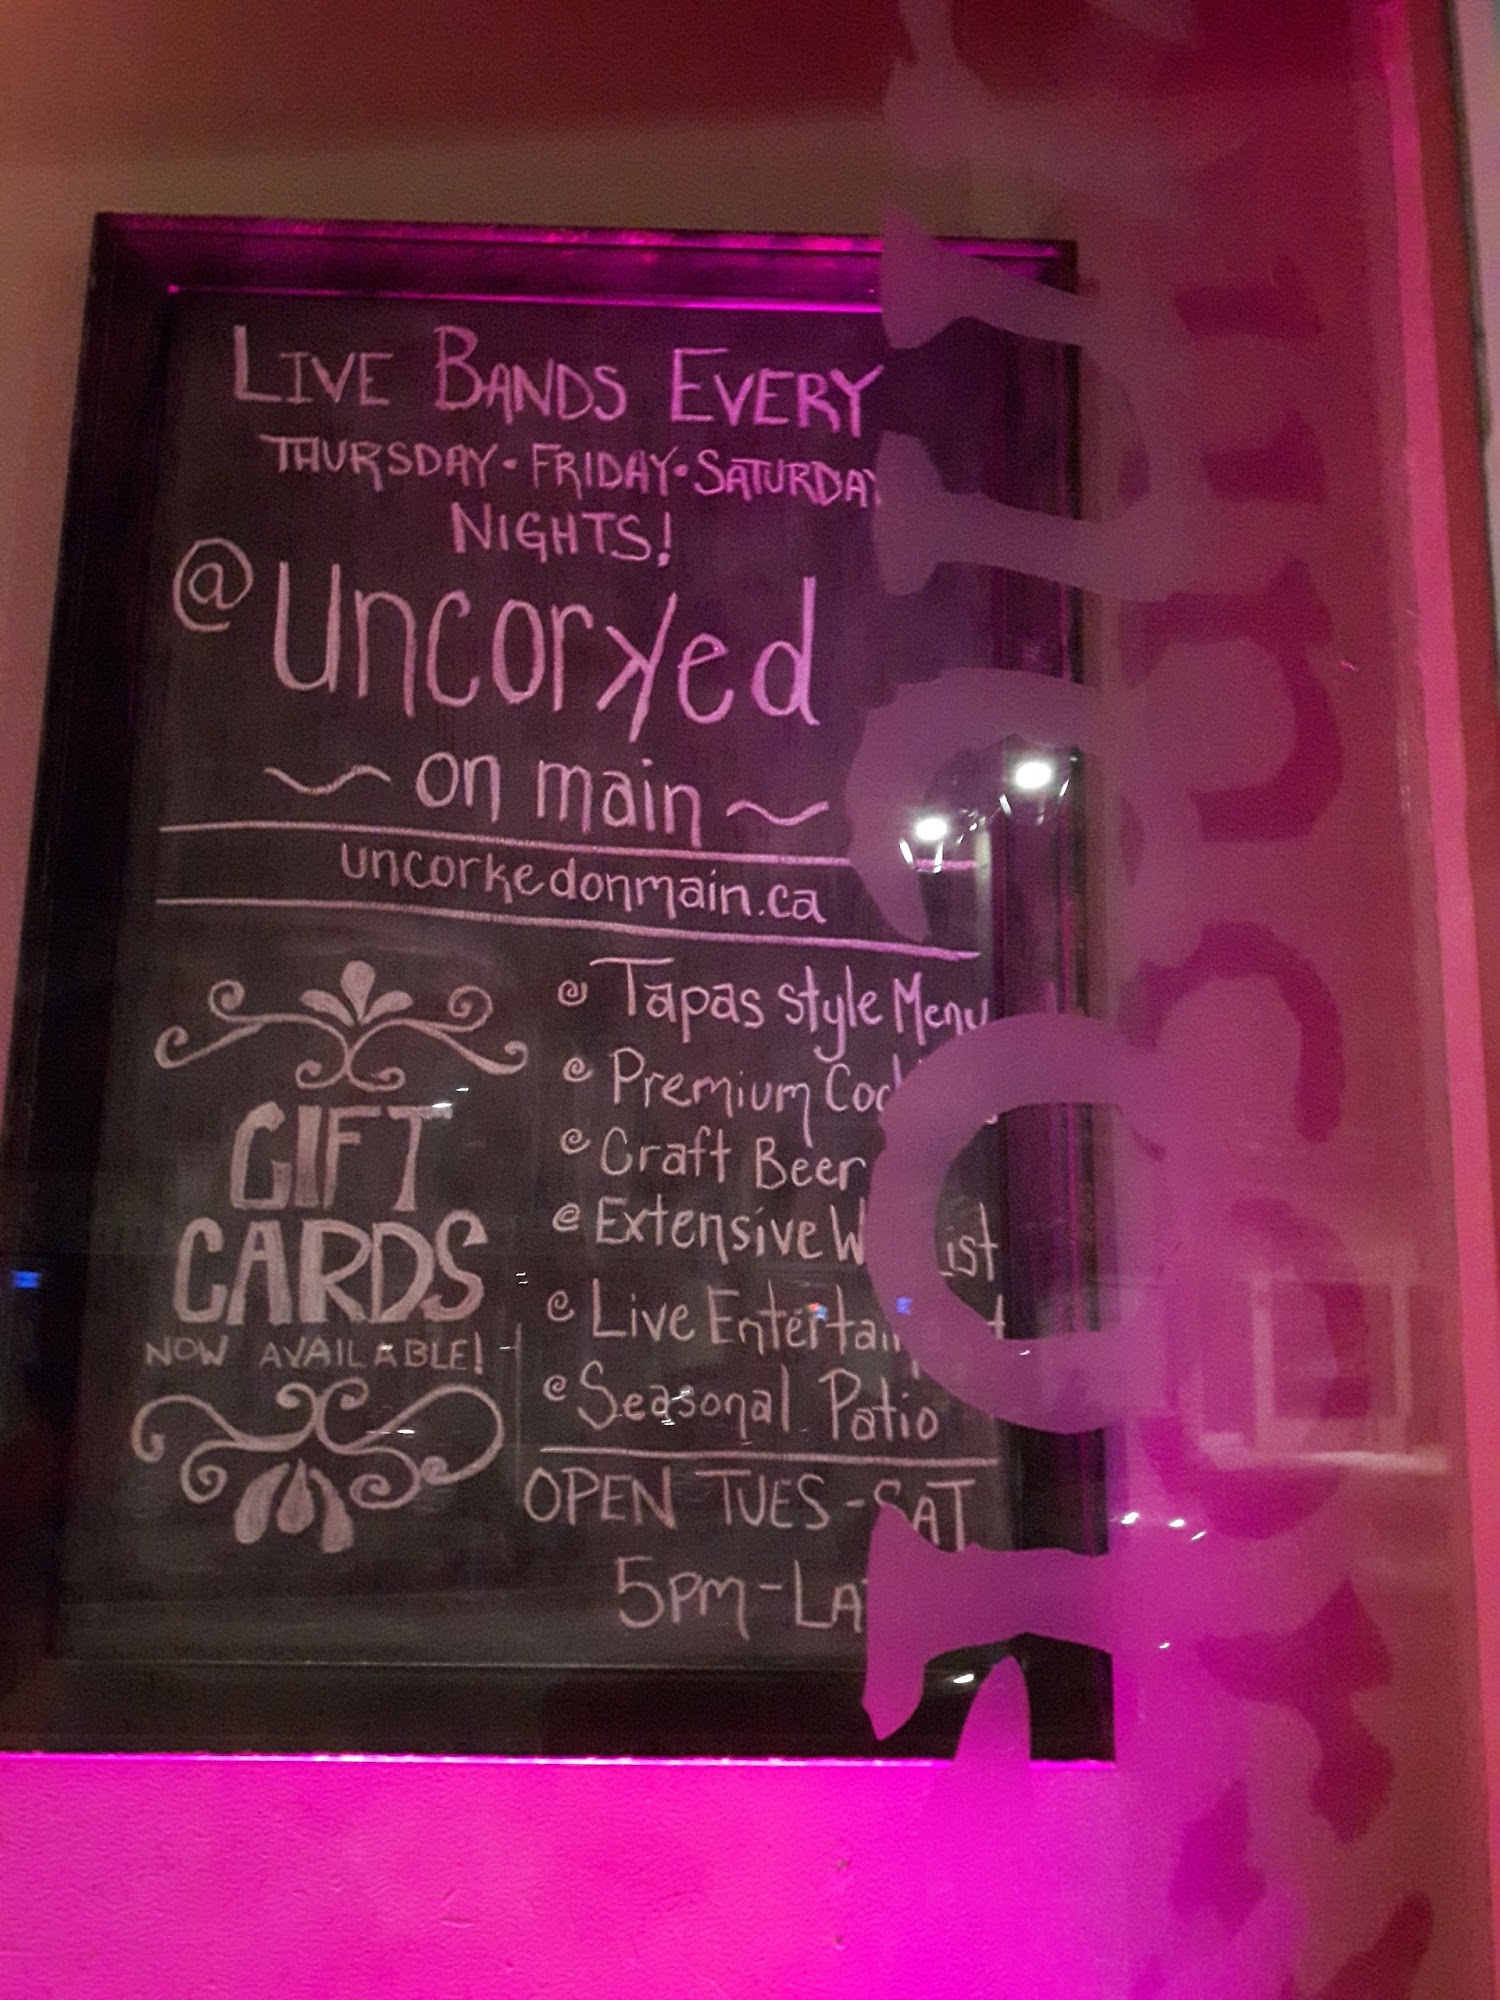 LIVE BANDS EVERY
THURSDAY • FRIDAY • SATURDAY
NIGHTS!
@uncorked
on main
uncorkedonmain.ca
GIFT
CARDS
NOW AVAILABLE!
Tapas Style Menu
Premium
Craft Beer
Extensive List
Live
Seasonal Patio
OPEN TUES - SAT
5PM -